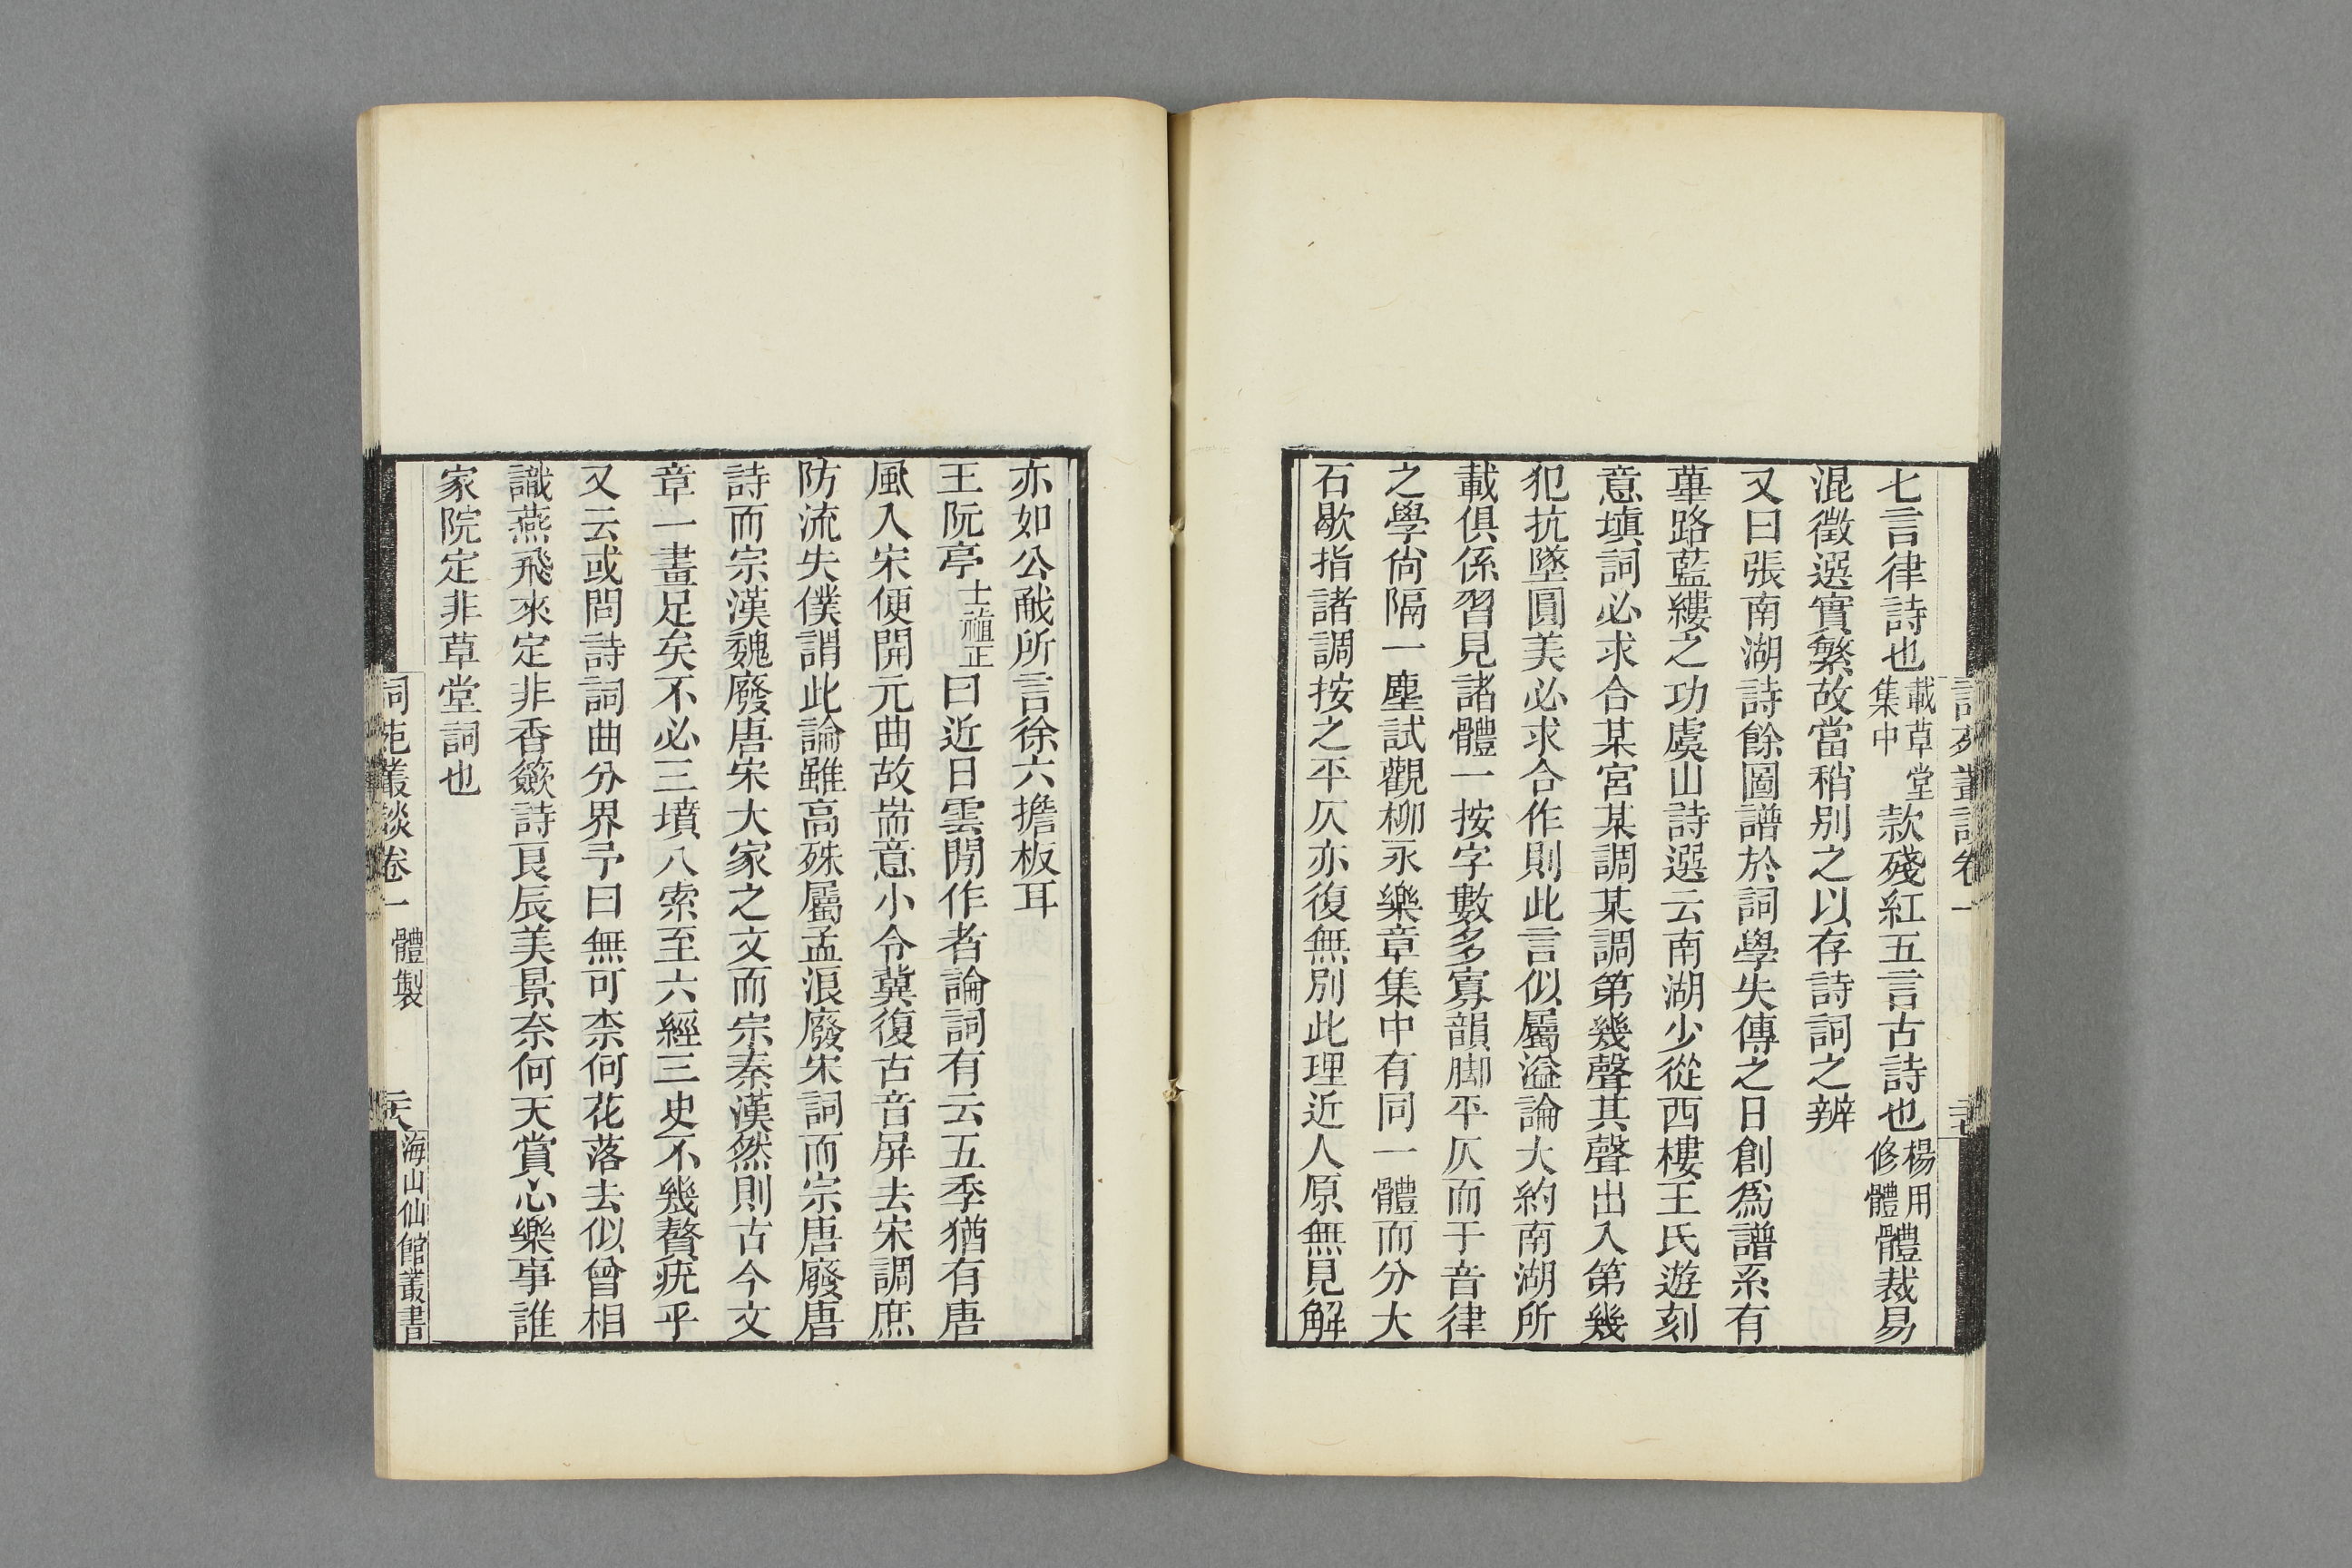 七言律詩也載草堂集中款殘紅五言古詩也楊用修體體裁易
混徵選實繁故當稍別之以存詩詞之辨
又曰張南湖詩餘圖譜於詞學失傳之日創爲譜系有
蓽路藍縷之功虞山詩選云南湖少從西樓王氏遊刻
意塡詞必求合某宮某調某調第幾聲其聲出入第幾
犯抗墜圓美必求合作則此言似屬溢論大約南湖所
載俱係習見諸體一按字數多寡韻脚平仄而于音律
之學尙隔一塵試觀柳永樂章集中有同一體而分大
石歇指諸調按之平仄亦復無別此理近人原無見解
亦如公㦷所言徐六擔板耳
王阮亭士禛正曰近日雲間作者論詞有云五季猶有唐
風入宋便開元曲故耑意小令冀復古音屏去宋調庶
防流失僕謂此論雖高殊屬孟浪廢宋詞而宗唐廢唐
詩而宗漢魏廢唐宋大家之文而宗秦漢然則古今文
章一畫足矣不必三墳八索至六經三史不幾贅疣乎
又云或問詩詞曲分界予曰無可柰何花落去似曾相
識燕飛來定非香籢詩良辰美景奈何天賞心樂事誰
家院定非草堂詞也
詞苑叢談卷一 體製 海山仙館叢書